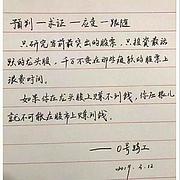 预判——求证——应变——跟随
只研究当前最突出的股票,只投资最活
跃的龙头股,千万不要在那些疲软的股票上
浪费时间。
如果你在龙头股上赚不到钱,你在根儿
就不可能在股市上赚到钱。
——0号特工
2019.5.12